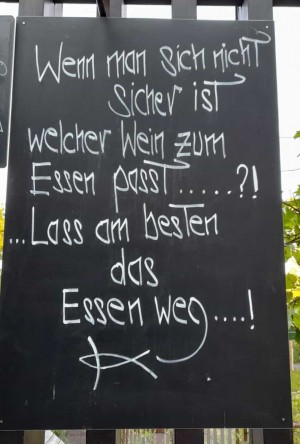 Wenn man sich nicht
sicher ist
welcher Wein zum
Essen passt.....?!
...Lass am besten
das
Essen weg....!